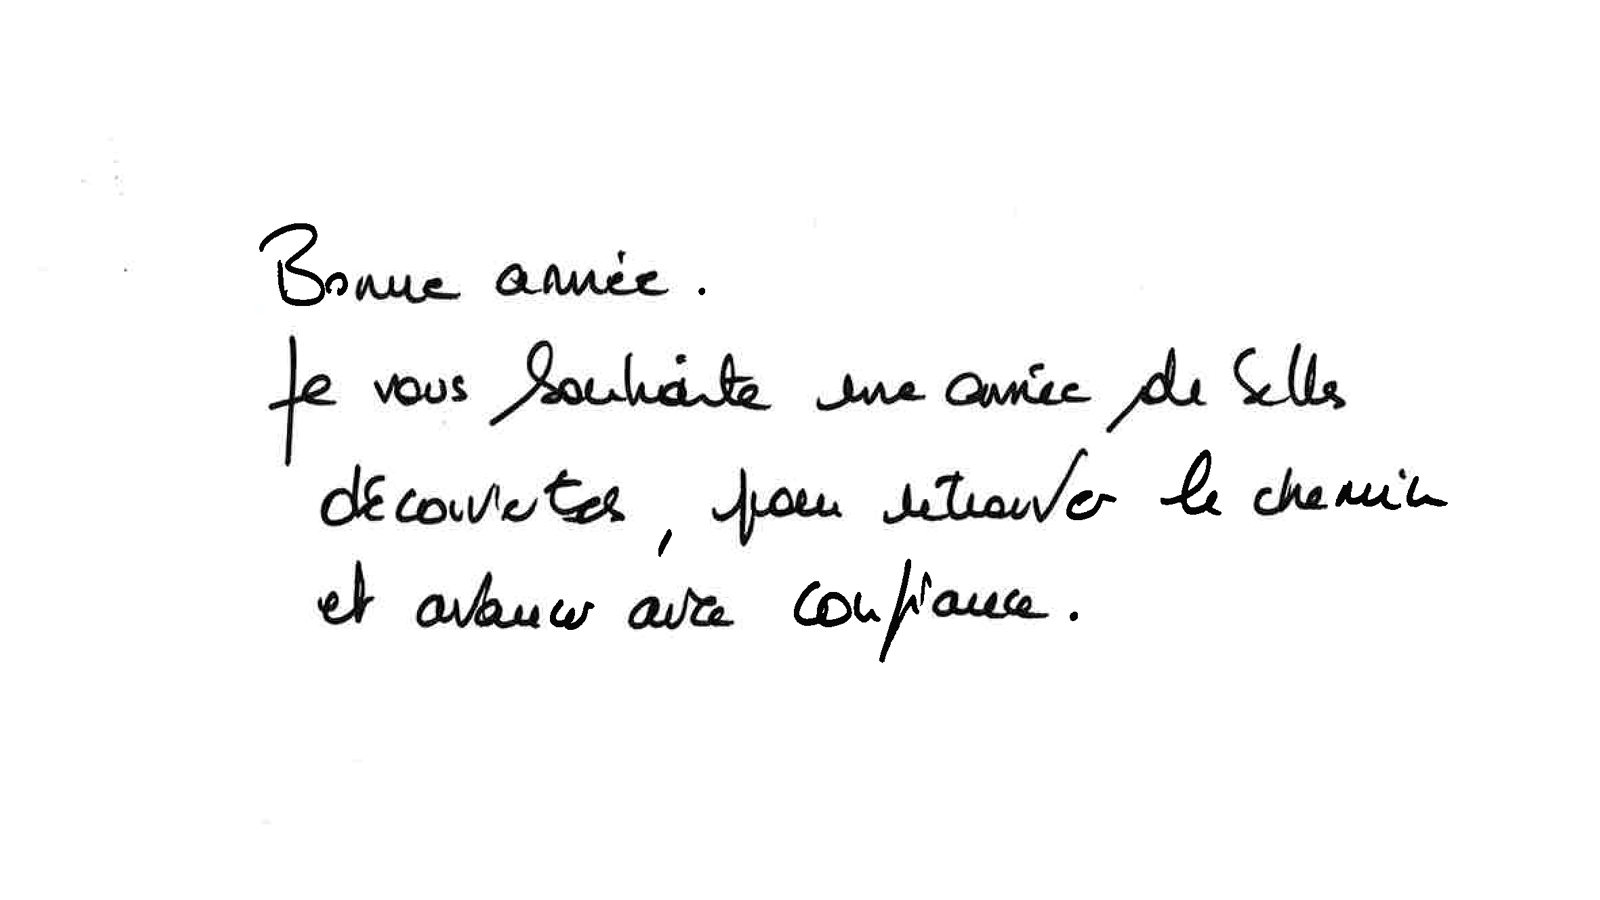 Bonne année.
Je vous souhaite une année de belles
découvertes, pour retrouver le chemin
et avancer avec confiance.